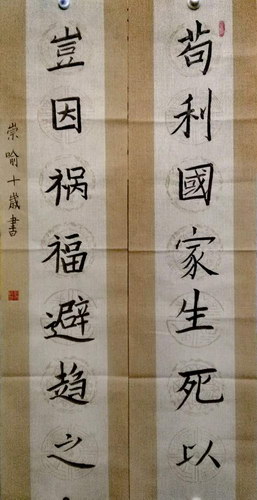 苟利國家生死以
豈因祸福避趋之
崇喻十歲書